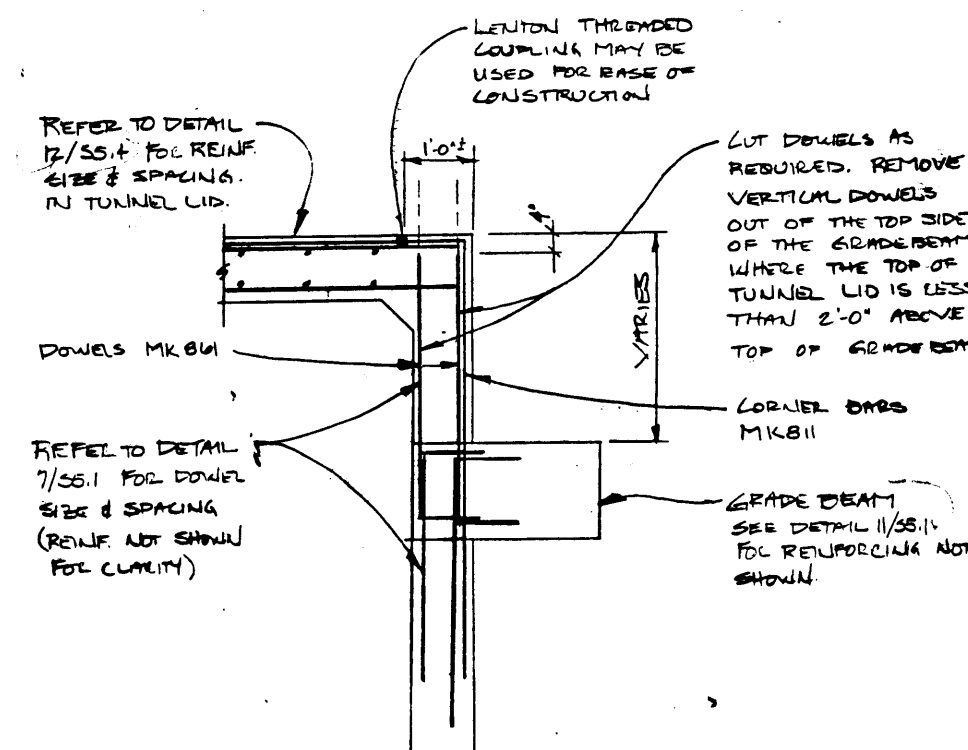 LENTON THREADED
COUPLING MAY BE
USED FOR EASE OF
CONSTRUCTION
REFER TO DETAIL
12/S5.4 FOR REINF.
SIZE & SPACING.
IN TUNNEL LID.
1'-0"±
4"
CUT DOWELS AS
REQUIRED. REMOVE
VERTICAL DOWELS
OUT OF THE TOP SIDE
OF THE GRADE BEAM
WHERE THE TOP OF
TUNNEL LID IS LESS
THAN 2'-0" ABOVE
TOP OF GRADE BEA
VARIES
DOWELS MK 861
CORNER BARS
MK811
REFER TO DETAIL
7/S5.1 FOR DOWEL
SIZE & SPACING
(REINF. NOT SHOWN
FOR CLARITY)
GRADE BEAM
SEE DETAIL 11/S5.1
FOR REINFORCING NOT
SHOWN.